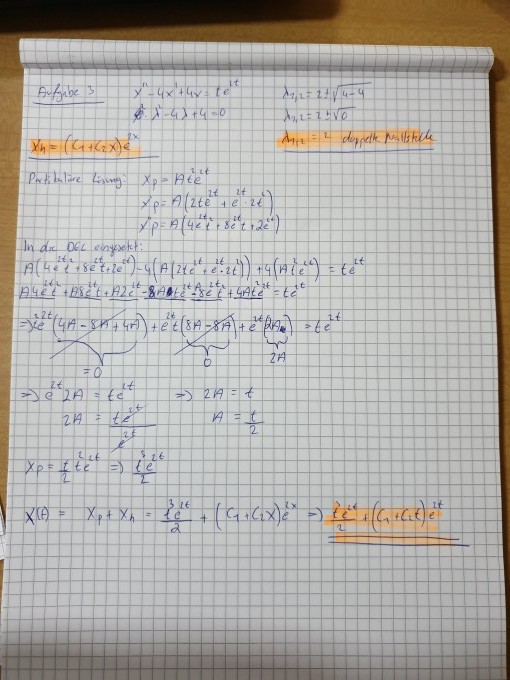 Aufgabe 3 x'' - 4x' + 4x = te^{2t} λ_{1,2} = 2 ± √(4-4)
λ² - 4λ + 4 = 0 λ_{1,2} = 2 ± √0
x_h = (C_1 + C_2 x) e^{2x} λ_{1,2} = 2 doppelte Nullstelle
Partikuläre Lösung: x_p = A t² e^{2t}
x'_p = A (2te^{2t} + e^{2t} · 2t²)
x''_p = A (4e^{2t} t² + 8e^{2t} t + 2e^{2t})
In die DGL eingesetzt:
A(4e^{2t} t² + 8e^{2t} t + 2e^{2t}) - 4(A(2te^{2t} + e^{2t} · 2t²)) + 4(A t² e^{2t}) = te^{2t}
A4e^{2t} t² + A8e^{2t} t + A2e^{2t} - 8A te^{2t} - 8e^{2t} t² A + 4A t² e^{2t} = te^{2t}
=> t² e^{2t} (4A - 8A + 4A) + e^{2t} t (8A - 8A) + e^{2t} (2A) = te^{2t}
= 0 0 2A
=> e^{2t} 2A = te^{2t} => 2A = t
2A = te^{2t} / e^{2t} A = t/2
x_p = t/2 t² e^{2t} => t³ e^{2t} / 2
x(t) = x_p + x_h = t³ e^{2t} / 2 + (C_1 + C_2 x) e^{2x} => t³ e^{2t} / 2 + (C_1 + C_2 t) e^{2t}